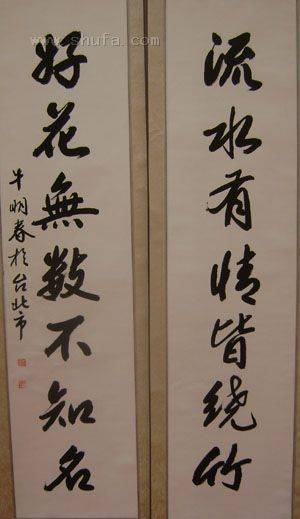 流水有情皆绕竹
好花無數不知名
牛明春於台北市
www.shufa.com